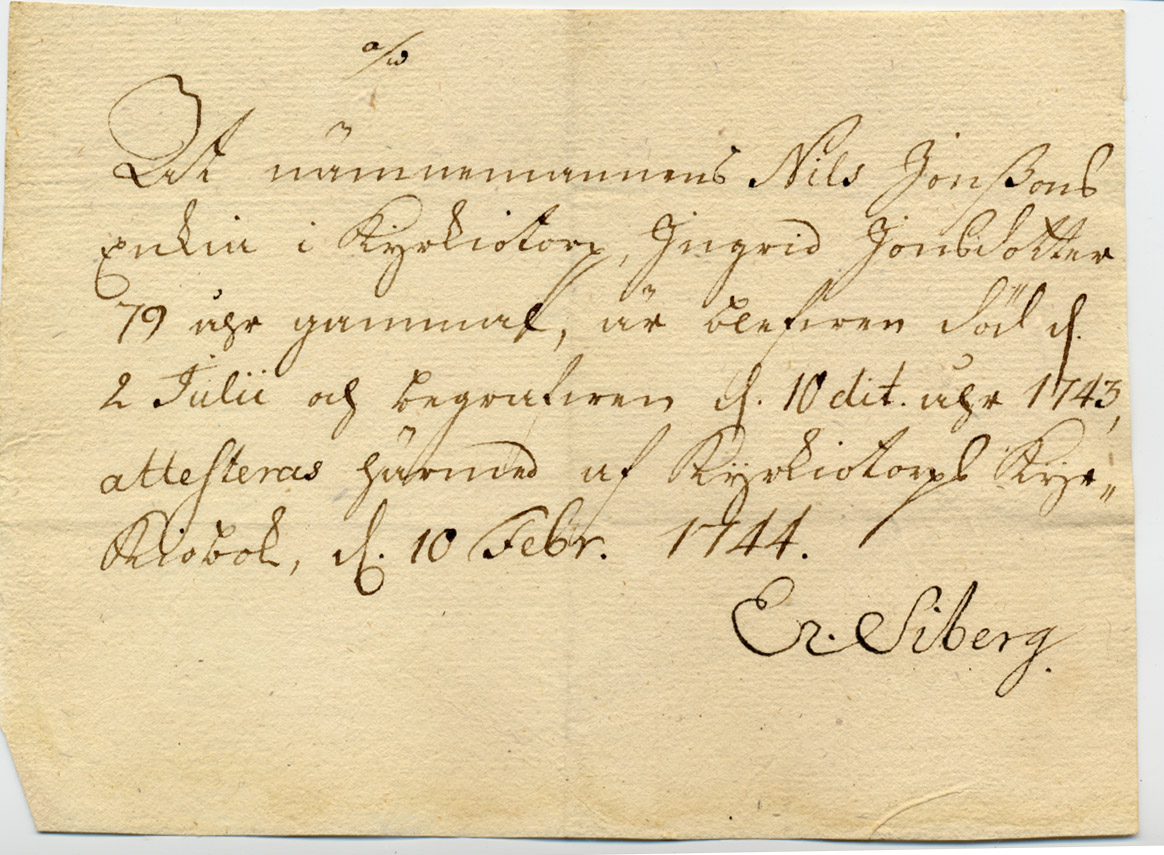 a/w
At nämnemannens Nils Jonßons
Enkia i Kyrkiotorp, Ingrid Jonsdotter
79 åhr gammal, är blefwen död d.
2 Julii och begrafwen d. 10 dit. åhr 1743,
attesteras härmed af Kyrkiotorps Kyr„
Kiobok, d. 10 Febr. 1744.
Er. Siberg.